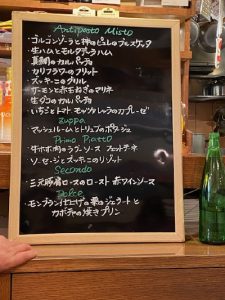 Antipasto Misto
・ゴルゴンゾーラと柿のピュレのブルスケッタ
・生ハムとモルタデッラハム
・真鯛のカルパッチョ
・カリフラワーのフリット
・ズッキーニのグリル
・サーモンと赤玉ねぎのマリネ
・生ダコのカルパッチョ
・いちごとトマト モッツァレラのカプレーゼ
Zuppa
・マッシュルームとトリュフのポタージュ
Primo Piatto
ラグーソース フェットチーネ
・ソーセージとズッキーニのリゾット
Secondo
・三元豚肩ロースのロースト 赤ワインソース
Dolce
・モンブラン仕上げの栗のジェラートと
カボチャの焼きプリン